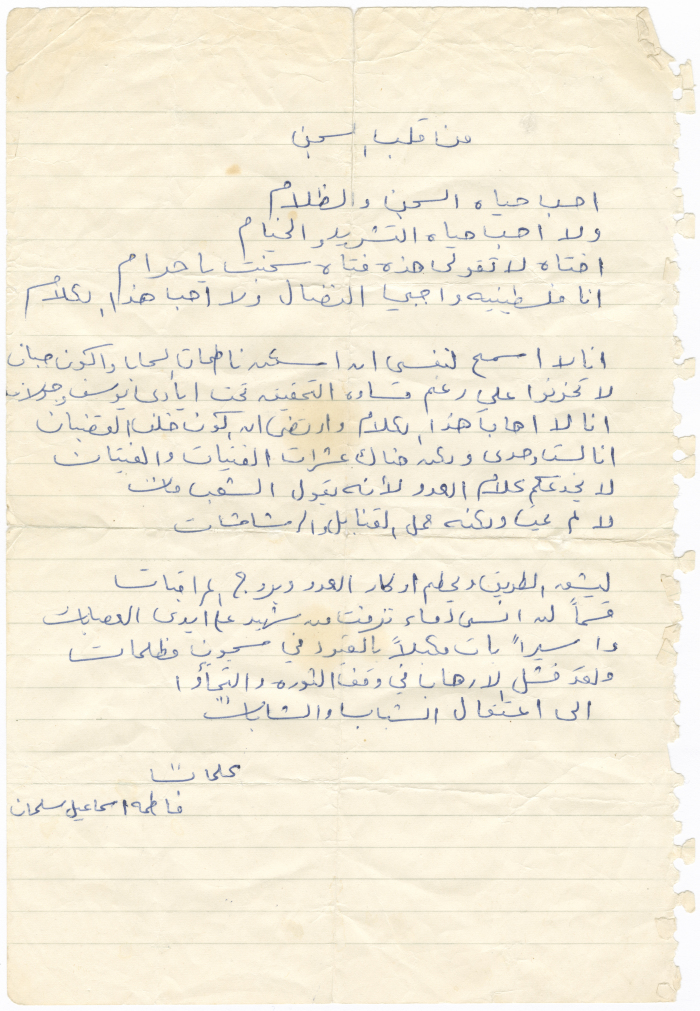 من قلب السجن
احب حياه السجن والظلام
ولا احب حياه التشريد والخيام
اختاه لا تقولي هذه فتاه سجنت يا حرام
انا فلسطينيه واجبي النضال ولا احب هذا الكلام
انا لا اسمح لنفسي ان اسكن ناطحات السحاب واكون جبان
لا تحزنوا علي رغم قساوه التحقيق تحت ايادي يوسف وجولان
انا لا اهاب هذا الكلام وارتضي ان اكون خلف القضبان
انا لست وحدي ولكن هناك عشرات الفتيات والفتيان
لا يخدعكم كلام العدو لأنه يقول الشعب مات
لا لم يمت ولكنه حمل القنابل والرشاشات
ليشق الطريق ويحطم اوكار العدو وبروج المراقبات
قسماً لن انسى دماء نزفت من شهيد على ايدي العصابات
واسيراً بات مكبلاً بالقيود في سجون مظلمات
ولقد فشل الارهاب في وقف الثوره والتجأوا
الى اعتقال الشباب والشابات
كلمات
فاطمه اسماعيل سلمان